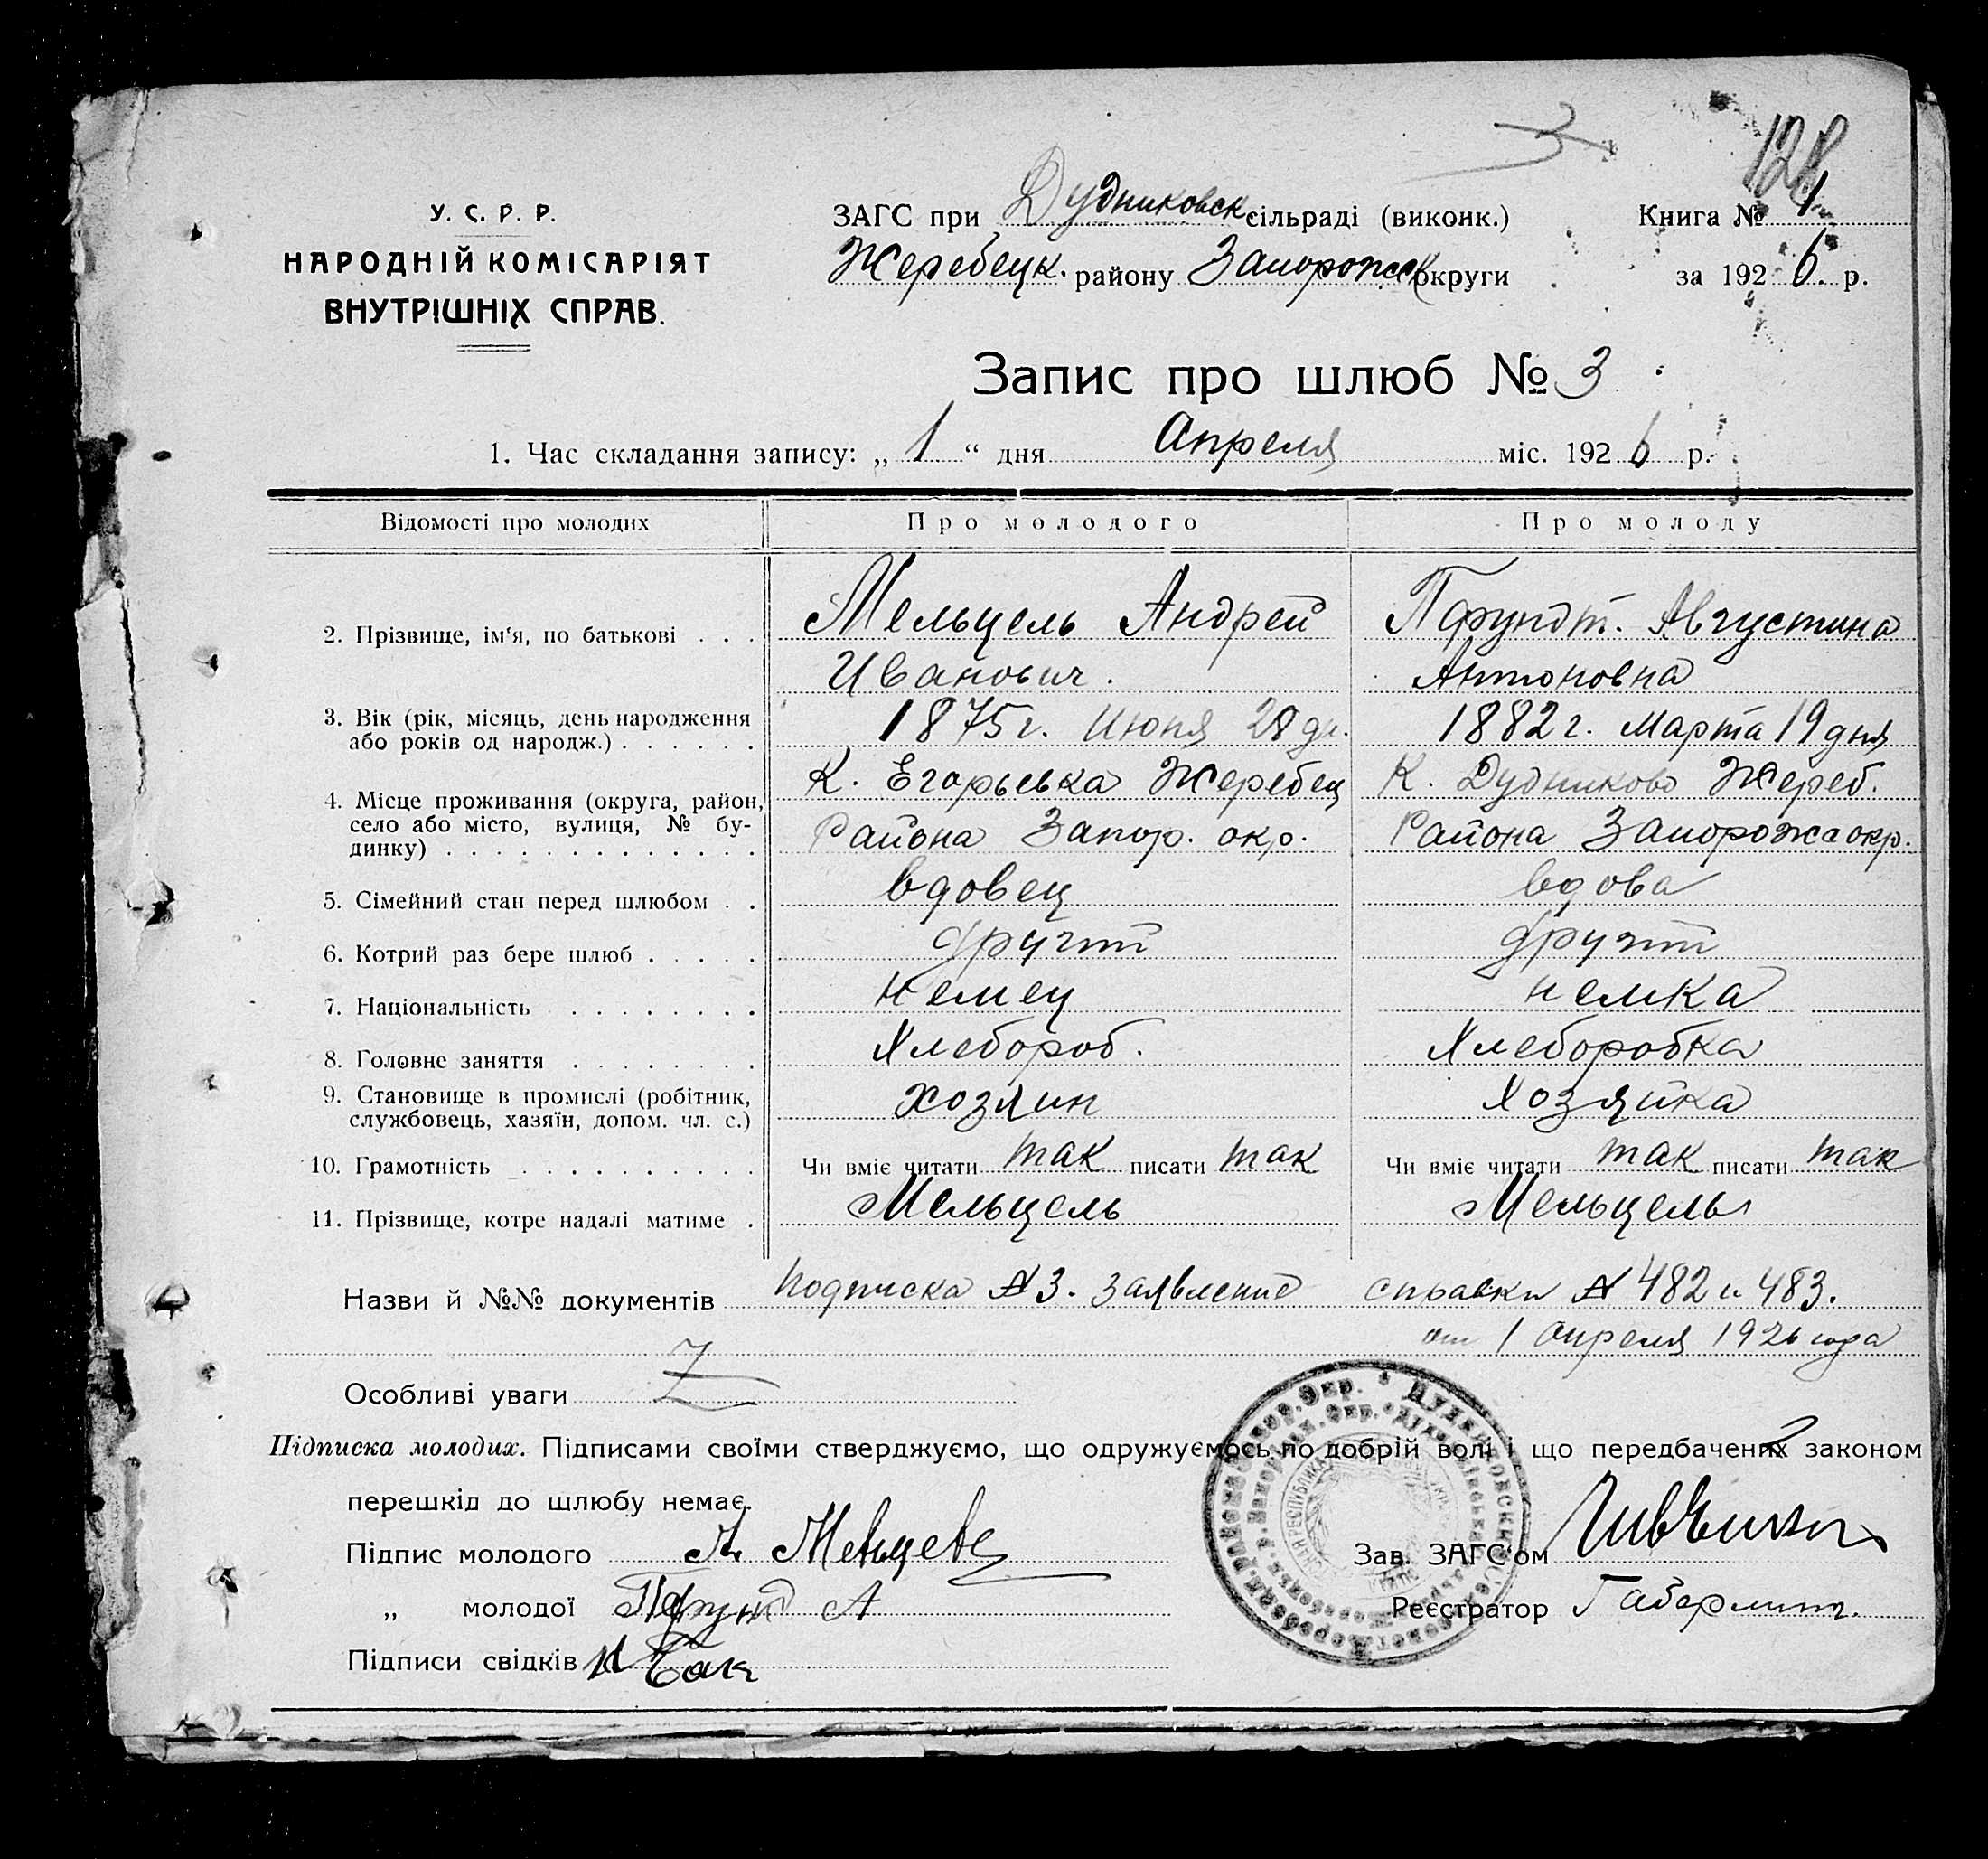 128
У. С. Р. Р.
НАРОДНІЙ КОМІСАРІЯТ
ВНУТРІШНІХ СПРАВ.
ЗАГС при Дудниковск сільраді (виконк.) Книга № 1
Жеребецк. району Запорожск округи за 1926 р.
Запис про шлюб № 3
1. Час складання запису: „ 1 “ дня Апреля міс. 1926 р.
Відомості про молодих Про молодого Про молоду
2. Прізвище, ім'я, по батькові . . . Мельцель Андрей Пфундт. Августина
Иванович. Антоновна
3. Вік (рік, місяць, день народження або років од народж.) . . . . . . 1875 г. Июня 28 дн. 1882 г. Марта 19 дня
4. Місце проживання (округа, район, село або місто, вулиця, № будинку) . . . . . . . . . . . . . К. Егорьевка Жеребец К. Дудниково Жереб.
Района Запор. окр. Района Запорожс окр.
5. Сімейний стан перед шлюбом . . вдовец вдова
6. Котрий раз бере шлюб . . . . . другий другий
7. Національність . . . . . . . . немец немка
8. Головне заняття . . . . . . . . Хлебороб. Хлеборобка
9. Становище в промислі (робітник, службовець, хазяїн, допом. чл. с.) хозяин Хозяйка
10. Грамотність . . . . . . . . . . Чи вміє читати так писати так Чи вміє читати так писати так
11. Прізвище, котре надалі матиме . Мельцель Мельцель
Назви й №№ документів подписка № 3. заявление справки № 482 и 483.
от 1 апреля 1926 года
Особливі уваги Z
Підписка молодих. Підписами своїми стверджуємо, що одружуємось по добрій волі і що передбачених законом
перешкід до шлюбу немає.
Підпис молодого А. Мельцель Зав. ЗАГС'ом
„ молодої Пфунд А Реєстратор Габерлит.
Підписи свідків